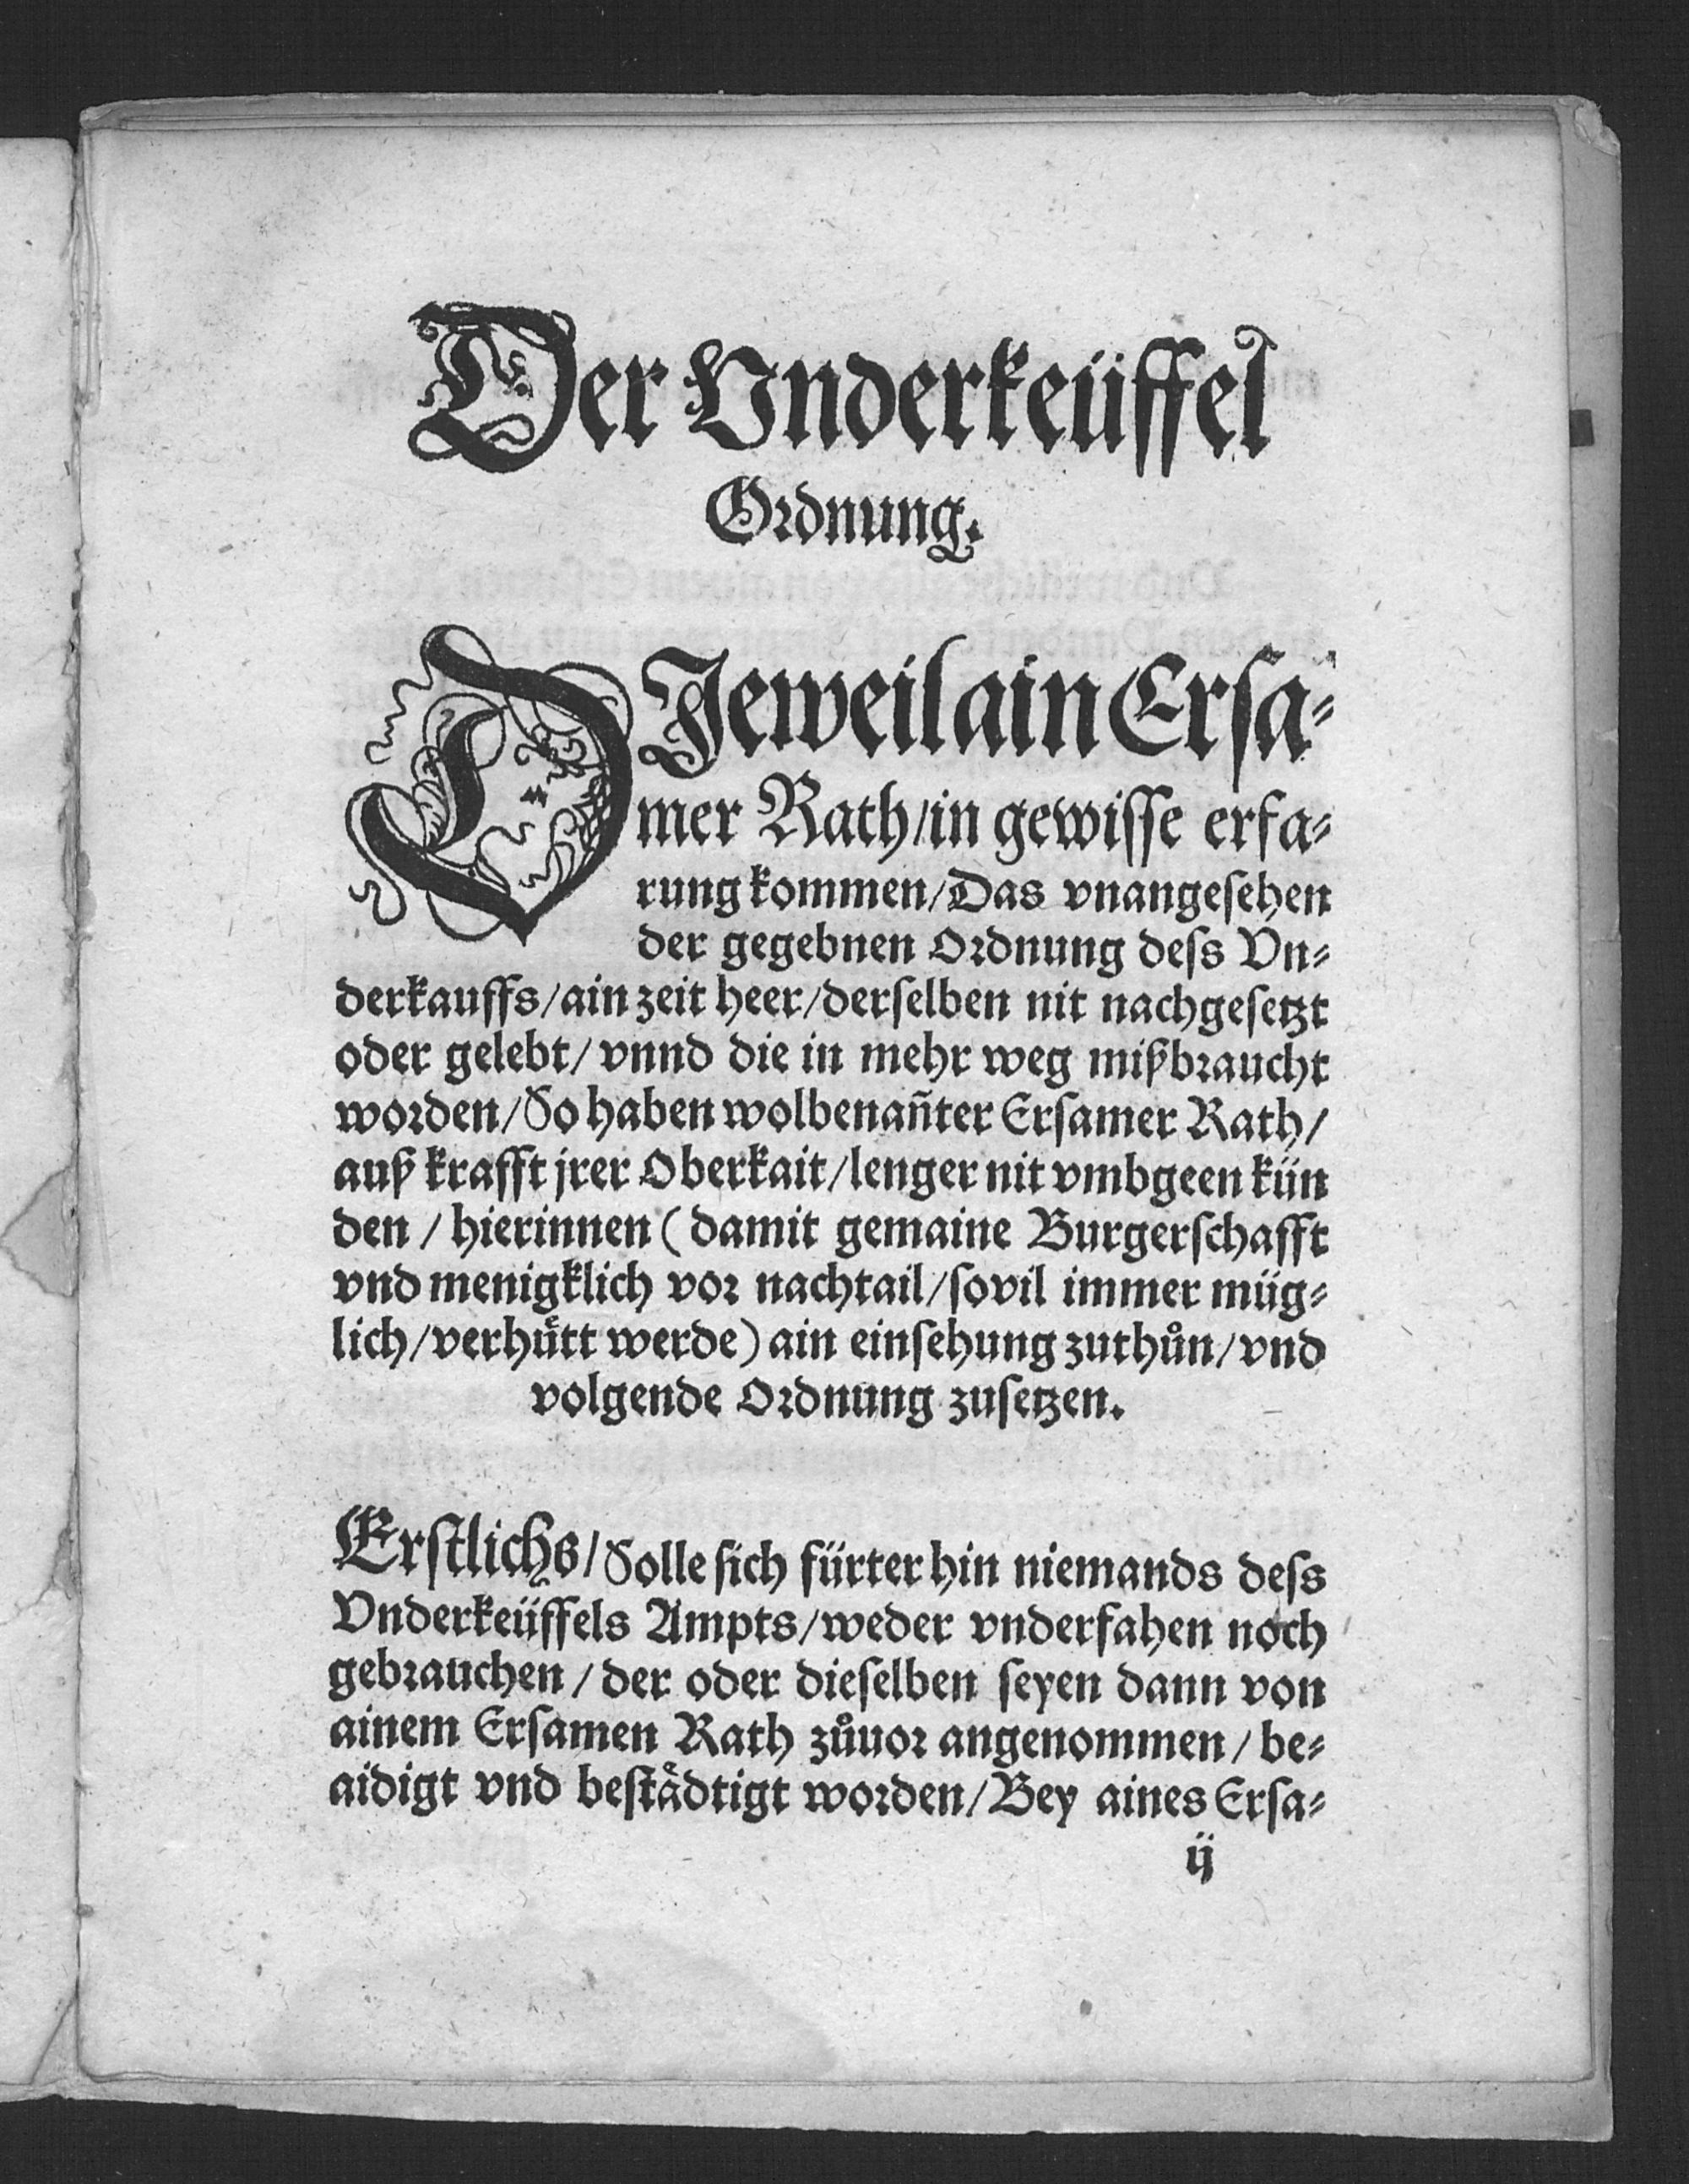 Der Vnderkeüffel
Ordnung.
DJeweil ain Ersa⸗
mer Rath/in gewisse erfa⸗
rung kommen/Das vnangesehen
der gegebnen Ordnung dess Vn⸗
derkauffs/ain zeit heer/derselben nit nachgesetzt
oder gelebt/vnnd die in mehr weg mißbraucht
worden/So haben wolbenan̄ter Ersamer Rath/
auß krafft jrer Oberkait/lenger nit vmbgeen kün
den/hierinnen (damit gemaine Burgerschafft
vnd menigklich vor nachtail/sovil immer müg⸗
lich/verhuͤtt werde) ain einsehung zuthůn/vnd
volgende Ordnung zusetzen.
Erstlichs/Solle sich fürterhin niemands dess
Vnderkeüffels Ampts/weder vnderfahen noch
gebrauchen/der oder dieselben seyen dann von
ainem Ersamen Rath zůuor angenommen/be⸗
aidigt vnd bestaͤdtigt worden/Bey aines Ersa⸗
ij